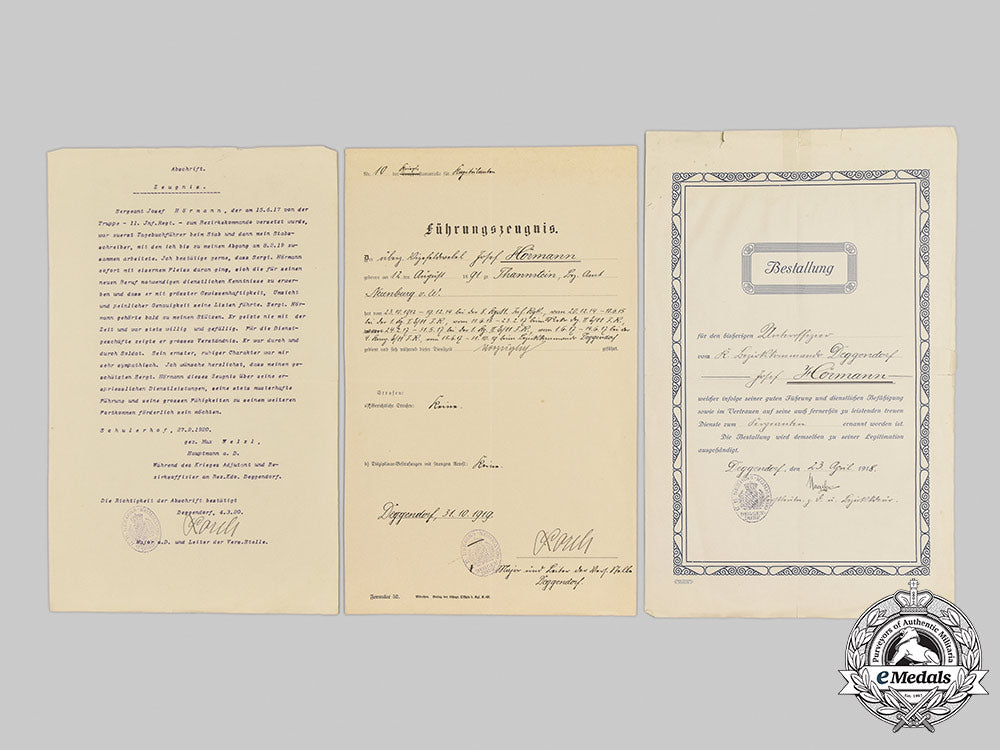 Abschrift.
Zeugnis.
Sergeant Josef Hörmann, der am 15.6.17 von der
Truppe - 11. Inf.Regt. - zum Bezirkskommando versetzt wurde,
war zuerst Tagebuchführer beim Stab und dann mein Stabs-
schreiber, mit dem ich bis zu meinen Abgang am 8.2.19 zu-
sammen arbeitete. Ich bestätige gerne, dass Sergt. Hörmann
sofort mit eisernem Fleiss daran ging, sich die für seinen
neuen Beruf notwendigen dienstlichen Kenntnisse zu erwer-
ben und dass er mit grösster Gewissenhaftigkeit, Umsicht
und peinlicher Genauigkeit seine Listen führte. Sergt. Hör-
mann gehörte bald zu meinen Stützen. Er geizte nie mit der
Zeit und war stets willig und gefällig. Für die Dienst-
geschäfte zeigte er grosses Verständnis. Er war durch und
durch Soldat. Sein ernster, ruhiger Charakter war mir
sehr sympathisch. Ich wünsche herzlichst, dass meinen ge-
schätzten Sergt. Hörmann dieses Zeugnis über seine er-
spriesslichen Dienstleistungen, seine stets musterhafte
Führung und seine grossen Fähigkeiten zu seinem weiteren
Fortkommen förderlich sein möchten.
Schulerhof, 27.2.1920.
gez. Max Welzl,
Hauptmann a. D.
Während des Krieges Adjutant und Be-
zirksoffizier am Bez.Kdo. Deggendorf.
Die Richtigkeit der Abschrift bestätigt
Deggendorf, 4.3.20.
Major a.D. und Leiter der Vers.Stelle.
Nr. 10 der Kriegs stammrolle für Kapitulanten
Führungszeugnis.
Der überz. Vizefeldwebel Josef Hörmann
geboren am 12 ten August 1891 zu Thannstein, Bez. Amt
Neunburg v. W.
hat vom 23.10.1912 - 19.12.14 bei der
geführt.
Strafen:
a) Gerichtliche Strafen: Keine.
b) Disziplinar-Bestrafungen mit strengem Arrest: Keine.
Deggendorf, 31.10.1919.
Major und Leiter der Vers. Stelle
Deggendorf
Formular 52.
Bestallung
für den bisherigen Unteroffizier
vom K. Bezirkskommando Deggendorf
Josef Hörmann
welcher infolge seiner guten Führung und dienstlichen Befähigung
sowie im Vertrauen auf seine auch fernerhin zu leistenden treuen
Dienste zum Sergeanten ernannt worden ist.
Die Bestallung wird demselben zu seiner Legitimation
ausgehändigt.
Deggendorf, den 23. April 1918.
Oberstleutn. z. D. u. Bezirkskdeur.
Purveyors of Authentic Militaria
eMedals
Est. 1967